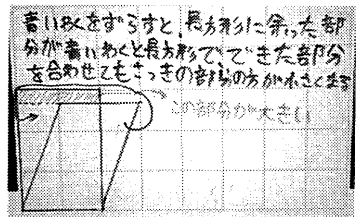 青いわくをずらすと、長方形に余った部
分が青いわくと長方形でできた部分
を合わせてもさっきの部分の方が小さくなる
この部分が大きい